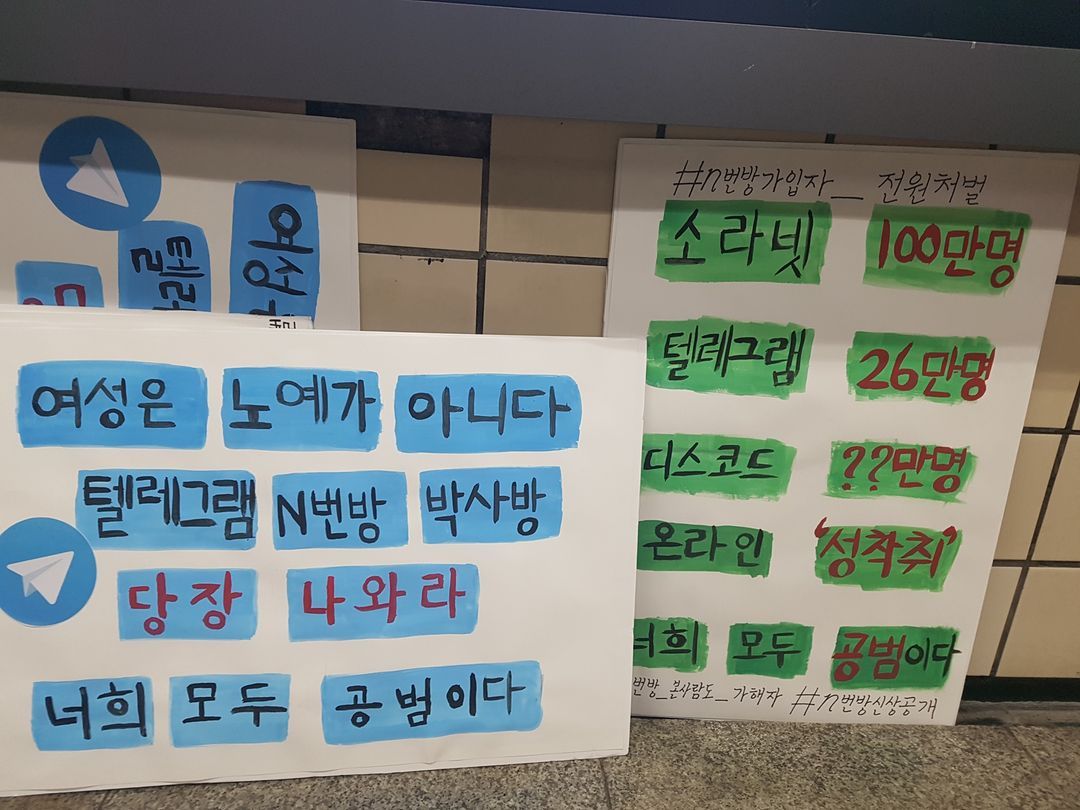 여성은 노예가 아니다
텔레그램 N번방 박사방
당장 나와라
너희 모두 공범이다
#n번방가입자_ 전원처벌
소라넷 100만명
텔레그램 26만명
디스코드 ??만명
온라인 '성착취'
너희 모두 공범이다
번방_본사람도_가해자 #n번방신상공개